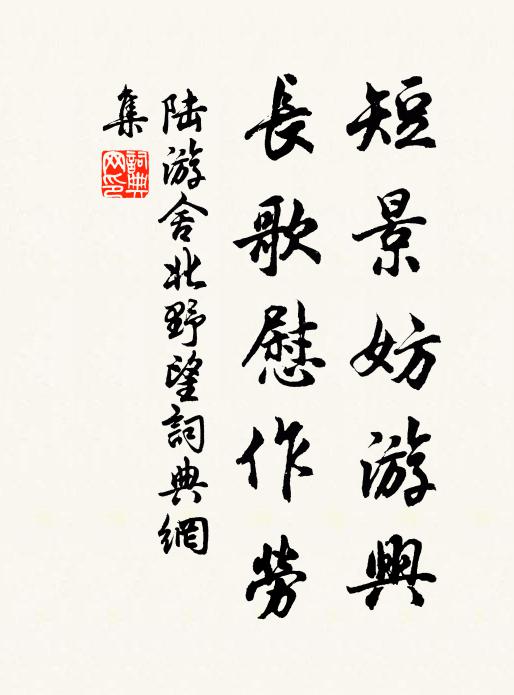 短景妨游興
長歌慰作勞
陆游舍北野望詞典網
集
詞典
网印